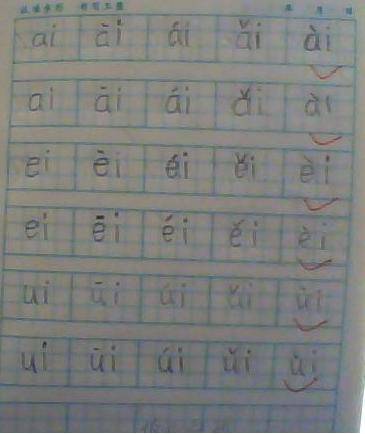 ai āi ái ǎi ài
ai āi ái ǎi ài
ei ēi éi ěi èi
ei ēi éi ěi èi
ui ūi úi ǔi ùi
ui ūi úi ǔi ùi